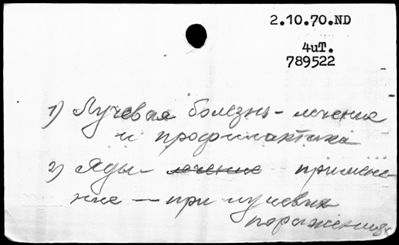 2.10.70.ND
4uT.
789522
1) Лучевая болезнь - лечение
и профилактика
2) Яды - лечение примене-
ние - при лучевых
поражениях